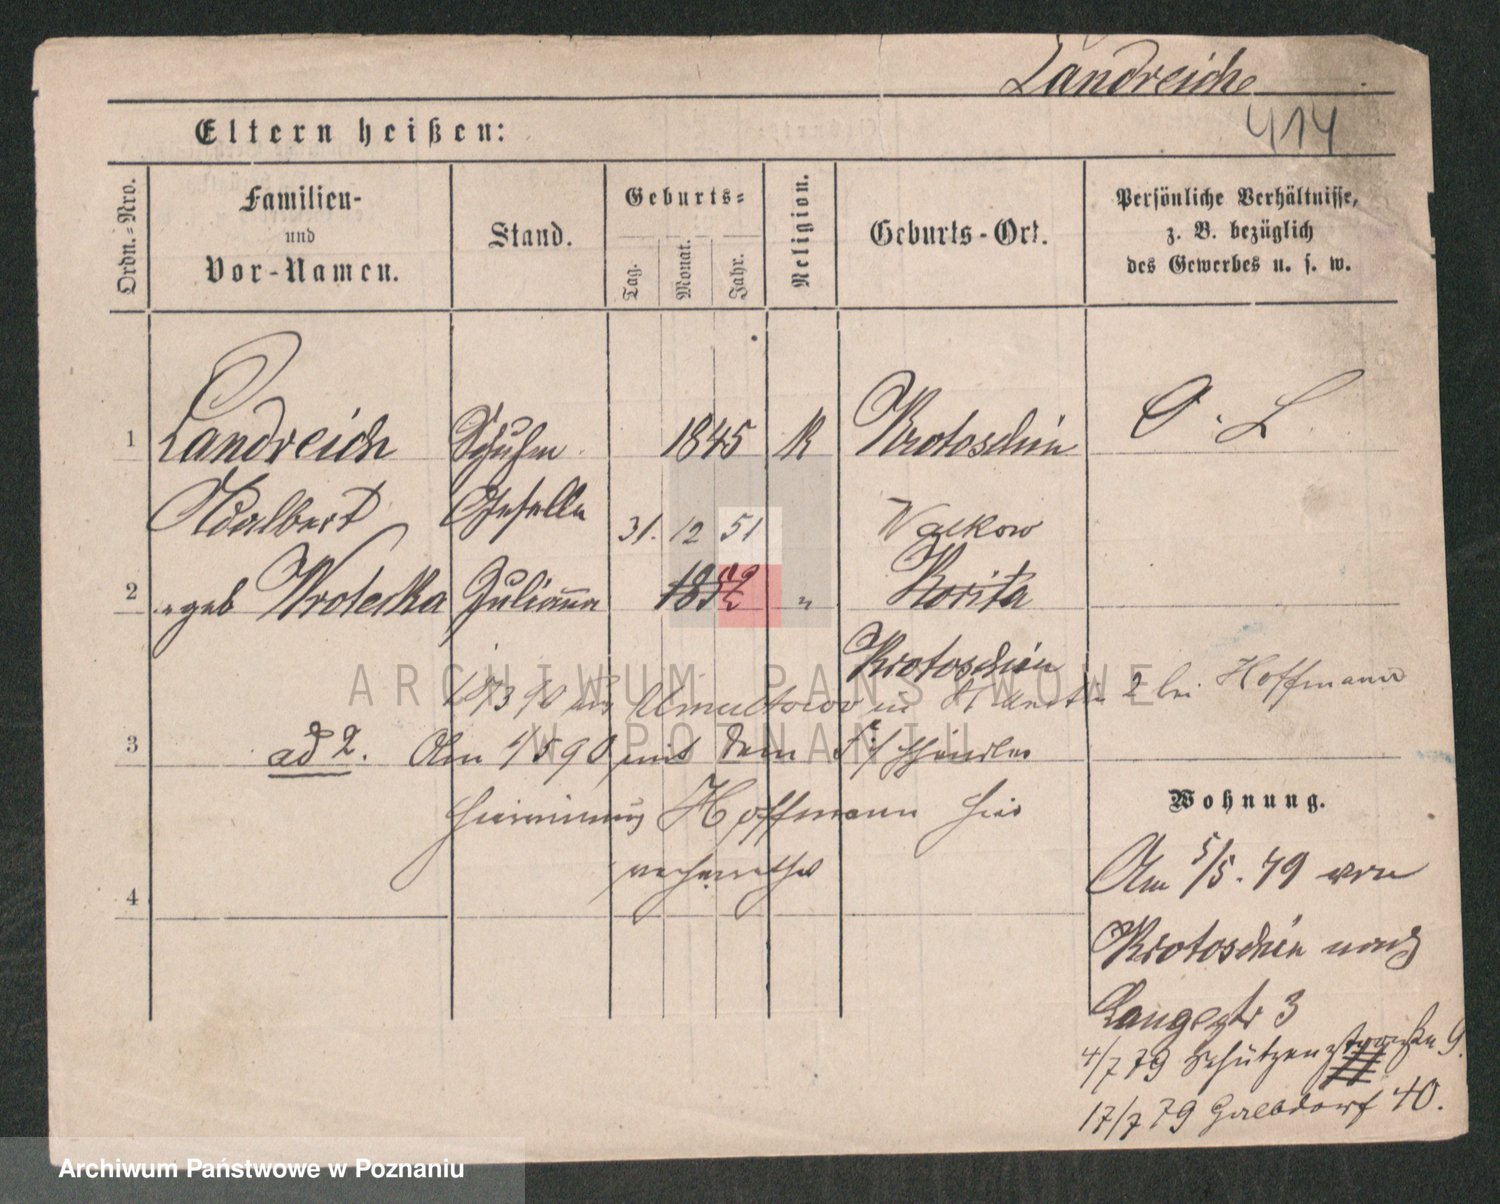 Landreich
414
Eltern heißen:
Ordn.-Nro.
Familien-
und
Vor-Namen.
Stand.
Geburts-
Tag.
Monat.
Jahr.
Religion.
Geburts-Ort.
Persönliche Verhältnisse,
z. B. bezüglich
des Gewerbes u. s. w.
1 Landreich Schuhm. 1845 K Krotoschin O. L.
Adalbert Geselle 31. 12 51 Walkow
2 geb Wrotecka Julianna 1852 " Korita
Krotoschin
90 2 bei Hoffmann
3 ad 2. Am 1/5 90 mit dem Händler
Hoffmann hier
4
Wohnung.
Am 5/5. 79 von
Krotoschin nach
Langestr 3
4/7 79 Schützenstraße 9.
17/7 79 40.
ARCHIWUM PAŃSTWOWE
W POZNANIU
Archiwum Państwowe w Poznaniu